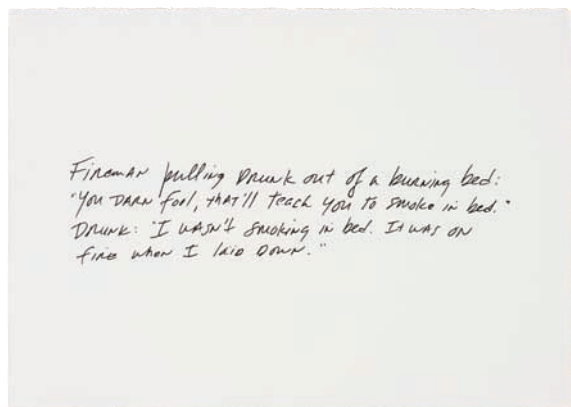 Fireman pulling Drunk out of a burning bed:
"You Darn fool, that'll teach you to smoke in bed."
Drunk: "I wasn't smoking in bed. It was on
fire when I laid down."